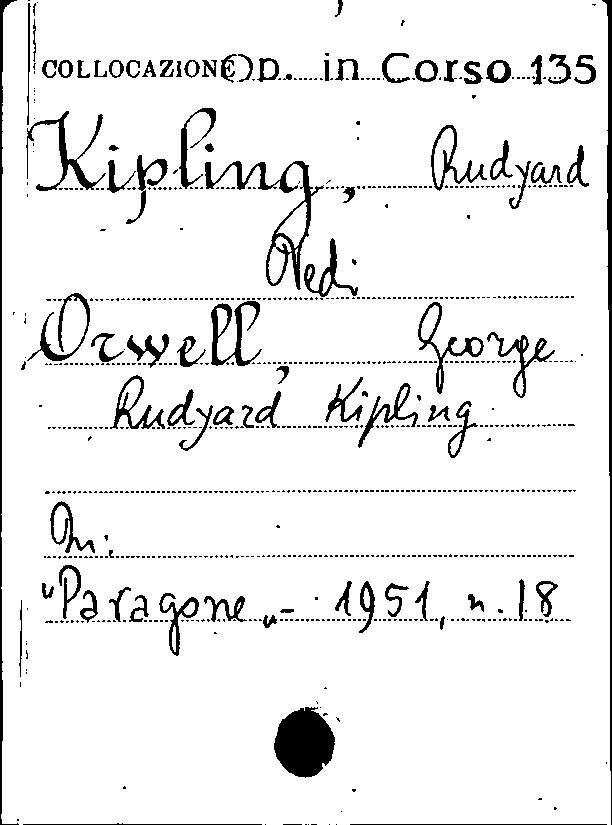 COLLOCAZIONE Op. in Corso 135
Kipling, Rudyard
Vedi
Orwell, George
Rudyard Kipling
In:
"Paragone„ - 1951, n. 18